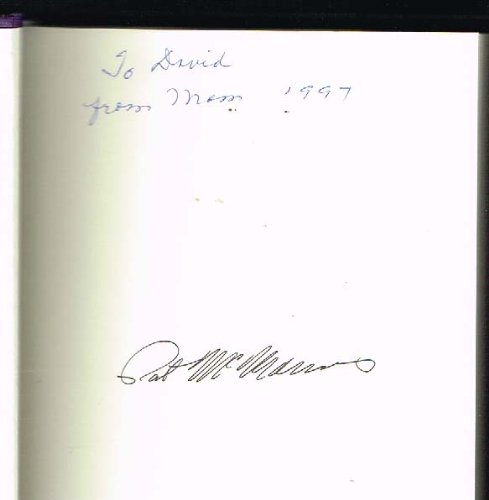 To David
from Mom 1997
Pat McManus